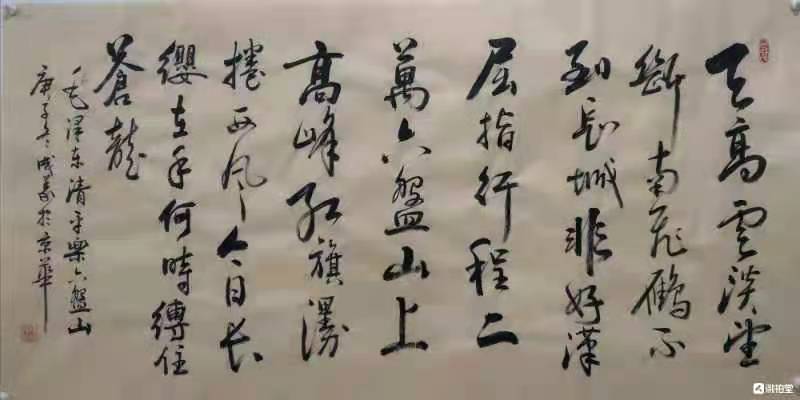 天高雲淡望
斷南飛鴈不
到長城非好漢
屈指行程二
萬六盤山上
高峰紅旗漫
捲西風今日長
纓在手何時縛住
蒼龍
毛澤東清平樂六盤山
庚子冬成義於京華
微拍堂